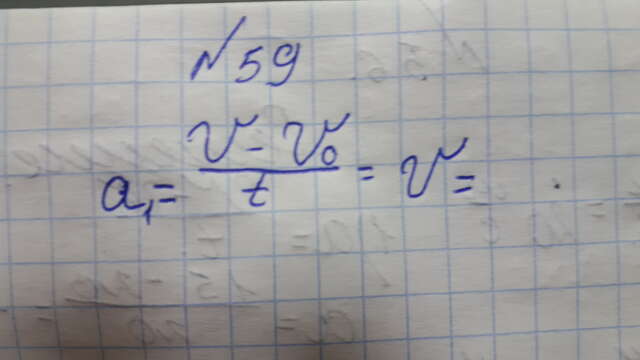 №59
a₁ = (v - v₀)/t = v =